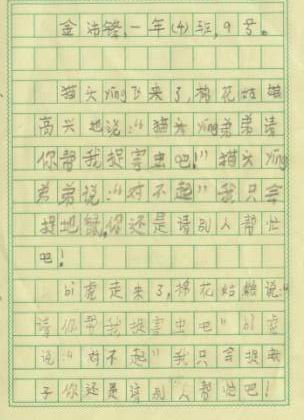 金治锋,一年(4)班,9号。
猫头yīng飞来了,棉花姑娘
高兴地说:“猫头yīng弟弟请
你帮我捉害虫吧!”猫头yīng
弟弟说:“对不起”我只会
捉地鼠,你还是请别人帮忙
吧!
bì虎走来了,棉花姑娘说:“
请你帮我捉害虫吧”bì虎
说“对不起”我只会捉蚊
子你还是请别人帮忙吧!